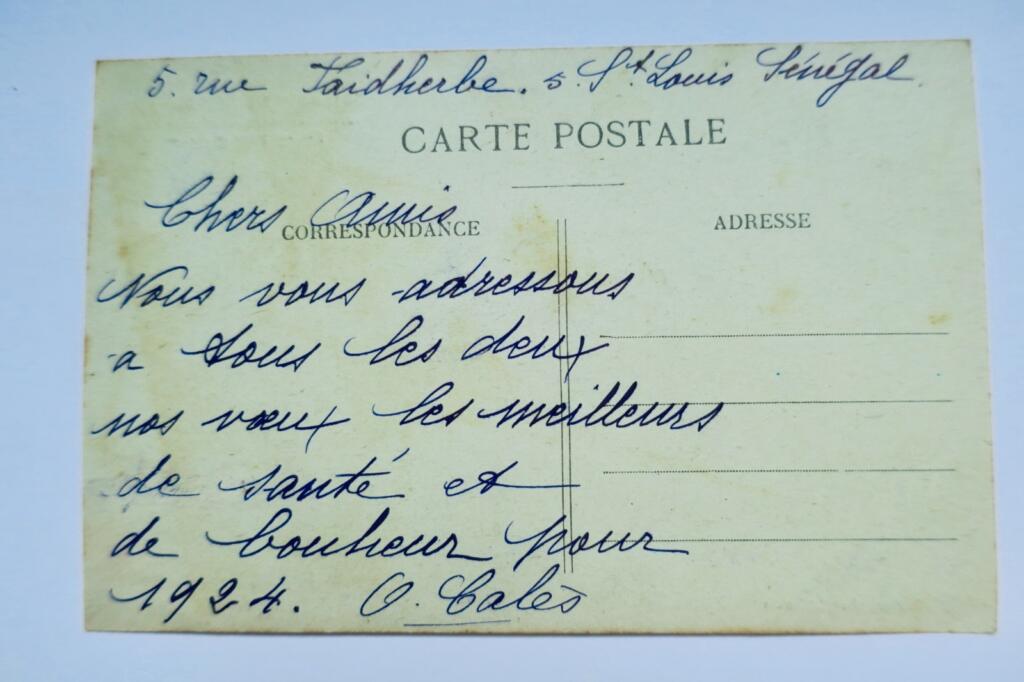 5. rue Faidherbe. s. St. Louis Sénégal.
CARTE POSTALE
Chers Amis
CORRESPONDANCE
ADRESSE
Nous vous adressons
a tous les deux
nos vœux les meilleurs
de santé et
de bonheur pour
1924. O. Calès